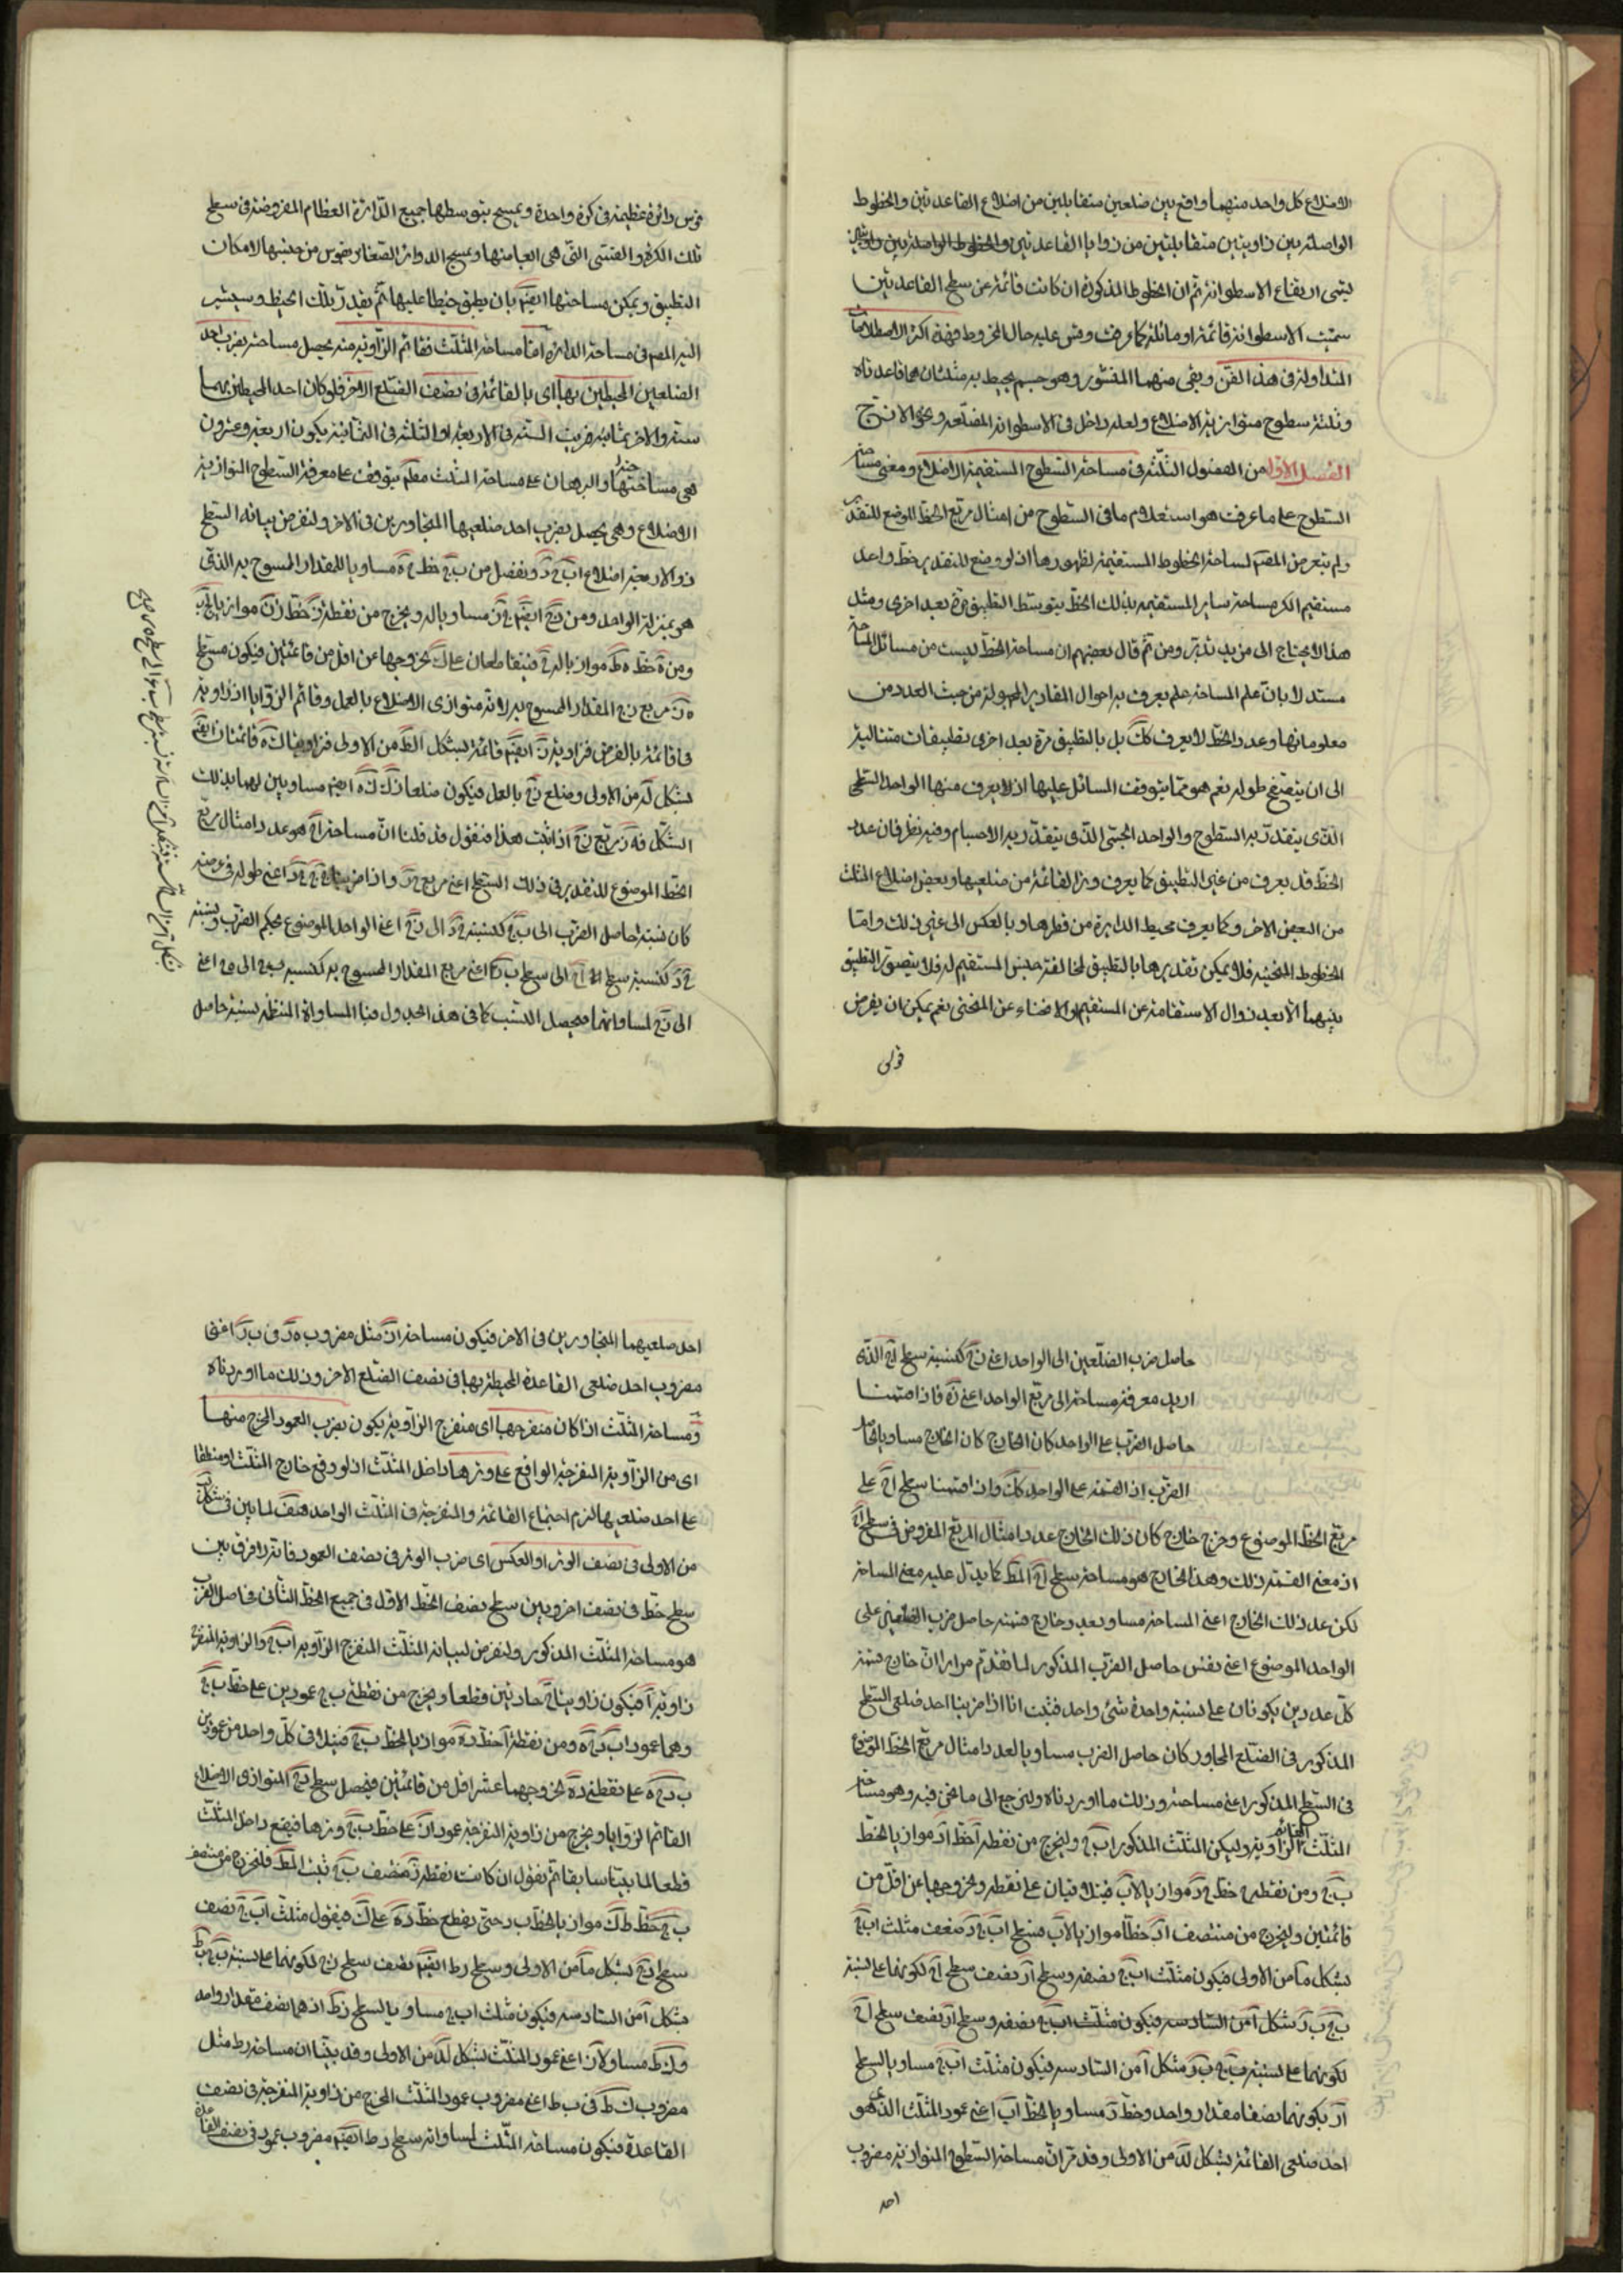 الاضلاع كل واحد منهما واقع بين ضلعين متقابلين من اضلاع القاعدتين والخطوط
الواصلة بين زاويتين متقابلتين من زوايا القاعدتين والخطوط الواصلة بين
يسمى ارتفاع الاسطوانة ثم ان الخطوط المذكورة ان كانت قائمة عن سطح القاعدتين
سميت الاسطوانة قائمة او مائلة كما عرفت وقس عليه حال المخروط فهذه اكثر الاصطلاحات
المتداولة فى هذا الفن وبقى منهما المنشور وهو جسم يحيط به مثلثان هما قاعدتاه
وثلثة سطوح متوازية الاضلاع ولعله داخل فى الاسطوانة المضلعة ونحو الاترج
الفصل الاول من الفصول الثلثة فى مساحة السطوح المستقيمة الاضلاع ومعنى مساحة
السطوح على ما عرفت هو استعلام ما فى السطوح من امثال مربع الخط الموضع للتقدير
ولم يتعرض المصنف لمساحة الخطوط المستقيمة لظهورها اذ لو وضع للتقدير خط واحد
مستقيم الكر مساحة ساير المستقيمة بذلك الخط بتوسط التطبيق مرة بعد اخرى ومثل
هذا لا يحتاج الى مزيد تدبر ومن ثم قال بعضهم ان مساحة الخط ليست من مسائل المساحة
مستدلا بان علم المساحة علم يعرف به احوال المقادير المجهولة من حيث العدد من
معلوماتها وعدد الخط لا يعرف كك بل بالتطبيق مرة بعد اخرى بتطبيقات متتالية
الى ان يتضح طوله نعم هو مما يتوقف المسائل عليها اذ لا يعرف منها الواحد السطحى
الذى يتقدر به السطوح والواحد الجسمى الذى يتقدر به الاجسام وفيه نظر فان عدد
الخط قد يعرف من غير التطبيق كما يعرف وتر القائمة من ضلعيها وبعض اضلاع المثلث
من البعض الاخر وكما يعرف محيط الدايرة من قطرها وبالعكس الى غير ذلك واما
الخطوط المنحنية فلا يمكن تقديرها بالتطبيق لمخالفة جنس المستقيم له فلا يتصور التطبيق
بينهما الا بعد زوال الاستقامة عن المستقيم والانحناء عن المنحنى نعم يمكن ان يفرض
قوس دائرة عظيمة فى كرة واحدة ويمسح بتوسطها جميع الدائرة العظام المفروضة فى سطح
تلك الكرة والقسى التى هى ابعاضها ويمسح الدوائر الصغار بقوس من جنسها لامكان
التطبيق ويمكن مساحتها ايضا بان يطبق خيطا عليها ثم يقدر بتلك الخيط وسيشير
اليه المصنف فى مساحة الدائرة اما مساحة المثلث فقائم الزاوية منه يحصل مساحته بضرب احد
الضلعين المحيطين بها اى بالقائمة فى نصف الضلع الاخر فلو كان احد المحيطين بها
ستة والاخر ثمانية ضربت الستة فى الاربعة او الثلثة فى الثمانية يكون اربعة وعشرون
هى مساحتها والبرهان على مساحة المثلث مطلقا يتوقف على معرفة السطوح المتوازية
الاضلاع وهى يحصل بضرب احد ضلعيها المتجاورين فى الاخر ولنفرض بيانه السطح
ذو الاربعة اضلاع ا ب ج د ونفصل من ب ج خط ج ه مساويا للمقدار الممسوح به الذى
هو بمنزلة الواحد ومن د ج ايضا ج ز مساويا له ونخرج من نقطة ز خط ز ك موازيا
ومن ه خط ه ط موازيا له فيتقاطعان على ك لخروجهما عن اقل من قائمتين فيكون مسطح
ه ز مربع ز ج المقدار الممسوح به لانه متوازى الاضلاع بالعمل وقائم الزوايا اذ زاوية
ج قائمة بالفرض فزاوية ز ايضا قائمة بشكل كط من الاولى فزاويتا ك ه قائمتان ايضا
بشكل لد من الاول وضلع ز ج بالعمل فيكون ضلعا ز ك ك ه ايضا مساويين لهما بذلك
الشكل فه ز مربع ز ج اذا ثبت هذا فنقول قد قلنا ان مساحة ا ج هو عدد امثال مربع
الخط الموضوع للتقدير فى ذلك السطح اعنى مربع ه ز واذا ضربنا ب ج فى ج د اعنى طوله فى عرضه
كان نسبة حاصل الضرب الى ب ج كنسبة ج د الى ز ج اعنى الواحد الموضوع بحكم الضرب ونسبة
الى ز ج لمساواتهما فيحصل النسب كما فى هذا الجدول فبالمساواة المنتظمة نسبة حاصل
حاصل ضرب الضلعين الى الواحد اعنى ز ج كنسبة سطح ا ج الذى
اريد معرفة مساحته الى مربع الواحد اعنى ه ز فاذا قسمنا
حاصل الضرب على الواحد كان الخارج كان الخارج مساويا لحاصل
الضرب اذ القسمة على الواحد كك وان قسمنا سطح ا ج على
مربع الخط الموضوع وخرج خارج كان ذلك الخارج عدد امثال المربع المفروض فى سطح ا ج
اذ معنى القسمة ذلك وهذا الخارج هو مساحة سطح ا ج المط كما يدل عليه معنى المساحة
لكن عدد ذلك الخارج اعنى المساحة مساو بعدد خارج قسمة حاصل ضرب الضلعين على
الواحد الموضوع اعنى نفس حاصل الضرب المذكور لما تقدم مرارا ان خارج قسمة
كل عددين يكونان على نسبة واحدة شئ واحد فثبت انا اذا ضربنا احد ضلعى السطح
المذكور فى الضلع المجاور كان حاصل الضرب مساويا لعدد امثال مربع الخط الموضوع
فى السطح المذكور اعنى مساحته وذلك ما اوردناه ولنرجع الى ما نحن فيه وهو مساحة
المثلث القائم الزاوية وليكن المثلث المذكور ا ب ج ولنخرج من نقطة ا خط ا د موازيا لخط
ب ج ومن نقطة ج خط ج د موازيا لاب فيتلاقيان على نقطة د لخروجهما عن اقل من
قائمتين ولنخرج من منتصف ا د خطا موازيا لاب فسطح ا ب ج د ضعف مثلث ا ب ج
بشكل ما من الاولى فيكون مثلث ا ب ج نصفه وسطح ا ز نصف سطح ا ج لكونهما على نسبة
ب ج ب ز بشكل ا من السادسة فيكون مثلث ا ب ج نصفه وسطح ا ز نصف سطح ا ج
لكونهما على نسبة ب ج ب ز بشكل ا من السادسة فيكون مثلث ا ب ج مساويا لسطح
ا ز لكونهما نصفا مقدار واحد وخط ز مساويا لخط ا ب اعنى عمود المثلث الذى هو
احد ضلعى القائمة بشكل لد من الاولى وقد مر ان مساحة السطوح المتوازية مضروب
احد
احد ضلعيهما المتجاورين فى الاخر فيكون مساحة ا ز مثل مضروب ه ز فى ب ز اعنى
مضروب احد ضلعى القاعدة المحيطة بها فى نصف الضلع الاخر وذلك ما اوردناه
ومساحة المثلث اذا كان منفرجها اى منفرج الزاوية يكون بضرب العمود المخرج منها
اى من الزاوية المنفرجة الواقع على وترها داخل المثلث اذ لو وقع خارج المثلث او منطبقا
على احد ضلعيها لزم اجتماع القائمة والمنفرجة فى المثلث الواحد هف لما بين فى شكل
من الاولى فى نصف الوتر او العكس اى ضرب الوتر فى نصف العمود فانه لا فرق بين
سطح خط فى نصف اخر وبين سطح نصف الخط الاول فى جميع الخط الثانى فحاصل الضرب
هو مساحة المثلث المذكور ولنفرض لبيانه المثلث المنفرج الزاوية ا ب ج والزاوية المنفرجة
زاوية ا فيكون زاويتا ب ج حادتين قطعا ونخرج من نقطتى ب ج عمودين على خط ب ج
وهما عمودا ب د ج ه ومن نقطة ا خط د ه موازيا لخط ب ج فيتلاقى كل واحد من عمودين
ب د ج ه على نقطتى د ه لخروجهما عن اقل من قائمتين فيحصل سطح د ج المتوازى الاضلاع
القائم الزوايا ونخرج من زاوية المنفرجة عمود ا ز على خط ب ج وترها فيقع داخل المثلث
قطعا لما بينا سابقا ثم نقول ان كانت نقطة ز منتصف ب ج ثبت المط فلنخرج من منتصف
ب ج خط ط ك موازيا لخط ب د حتى يقطع خط د ه على ك فيقول مثلث ا ب ج نصف
سطح د ج بشكل ما من الاولى وسطح د ط ايضا نصف سطح د ج لكونهما على نسبة ب ج ب ط
بشكل ا من السادسة فيكون مثلث ا ب ج مساويا لسطح د ط اذ هما نصف مقدار واحد
و ك ط مساو لا ز اعنى عمود المثلث بشكل لد من الاولى وقد بينا ان مساحة د ط مثل
مضروب ك ط فى ب ط اعنى مضروب عمود المثلث المخرج من زاوية المنفرجة فى نصف
القاعدة فيكون مساحة المثلث لمساواته سطح د ط ايضا مضروب عمود فى نصف القاعدة